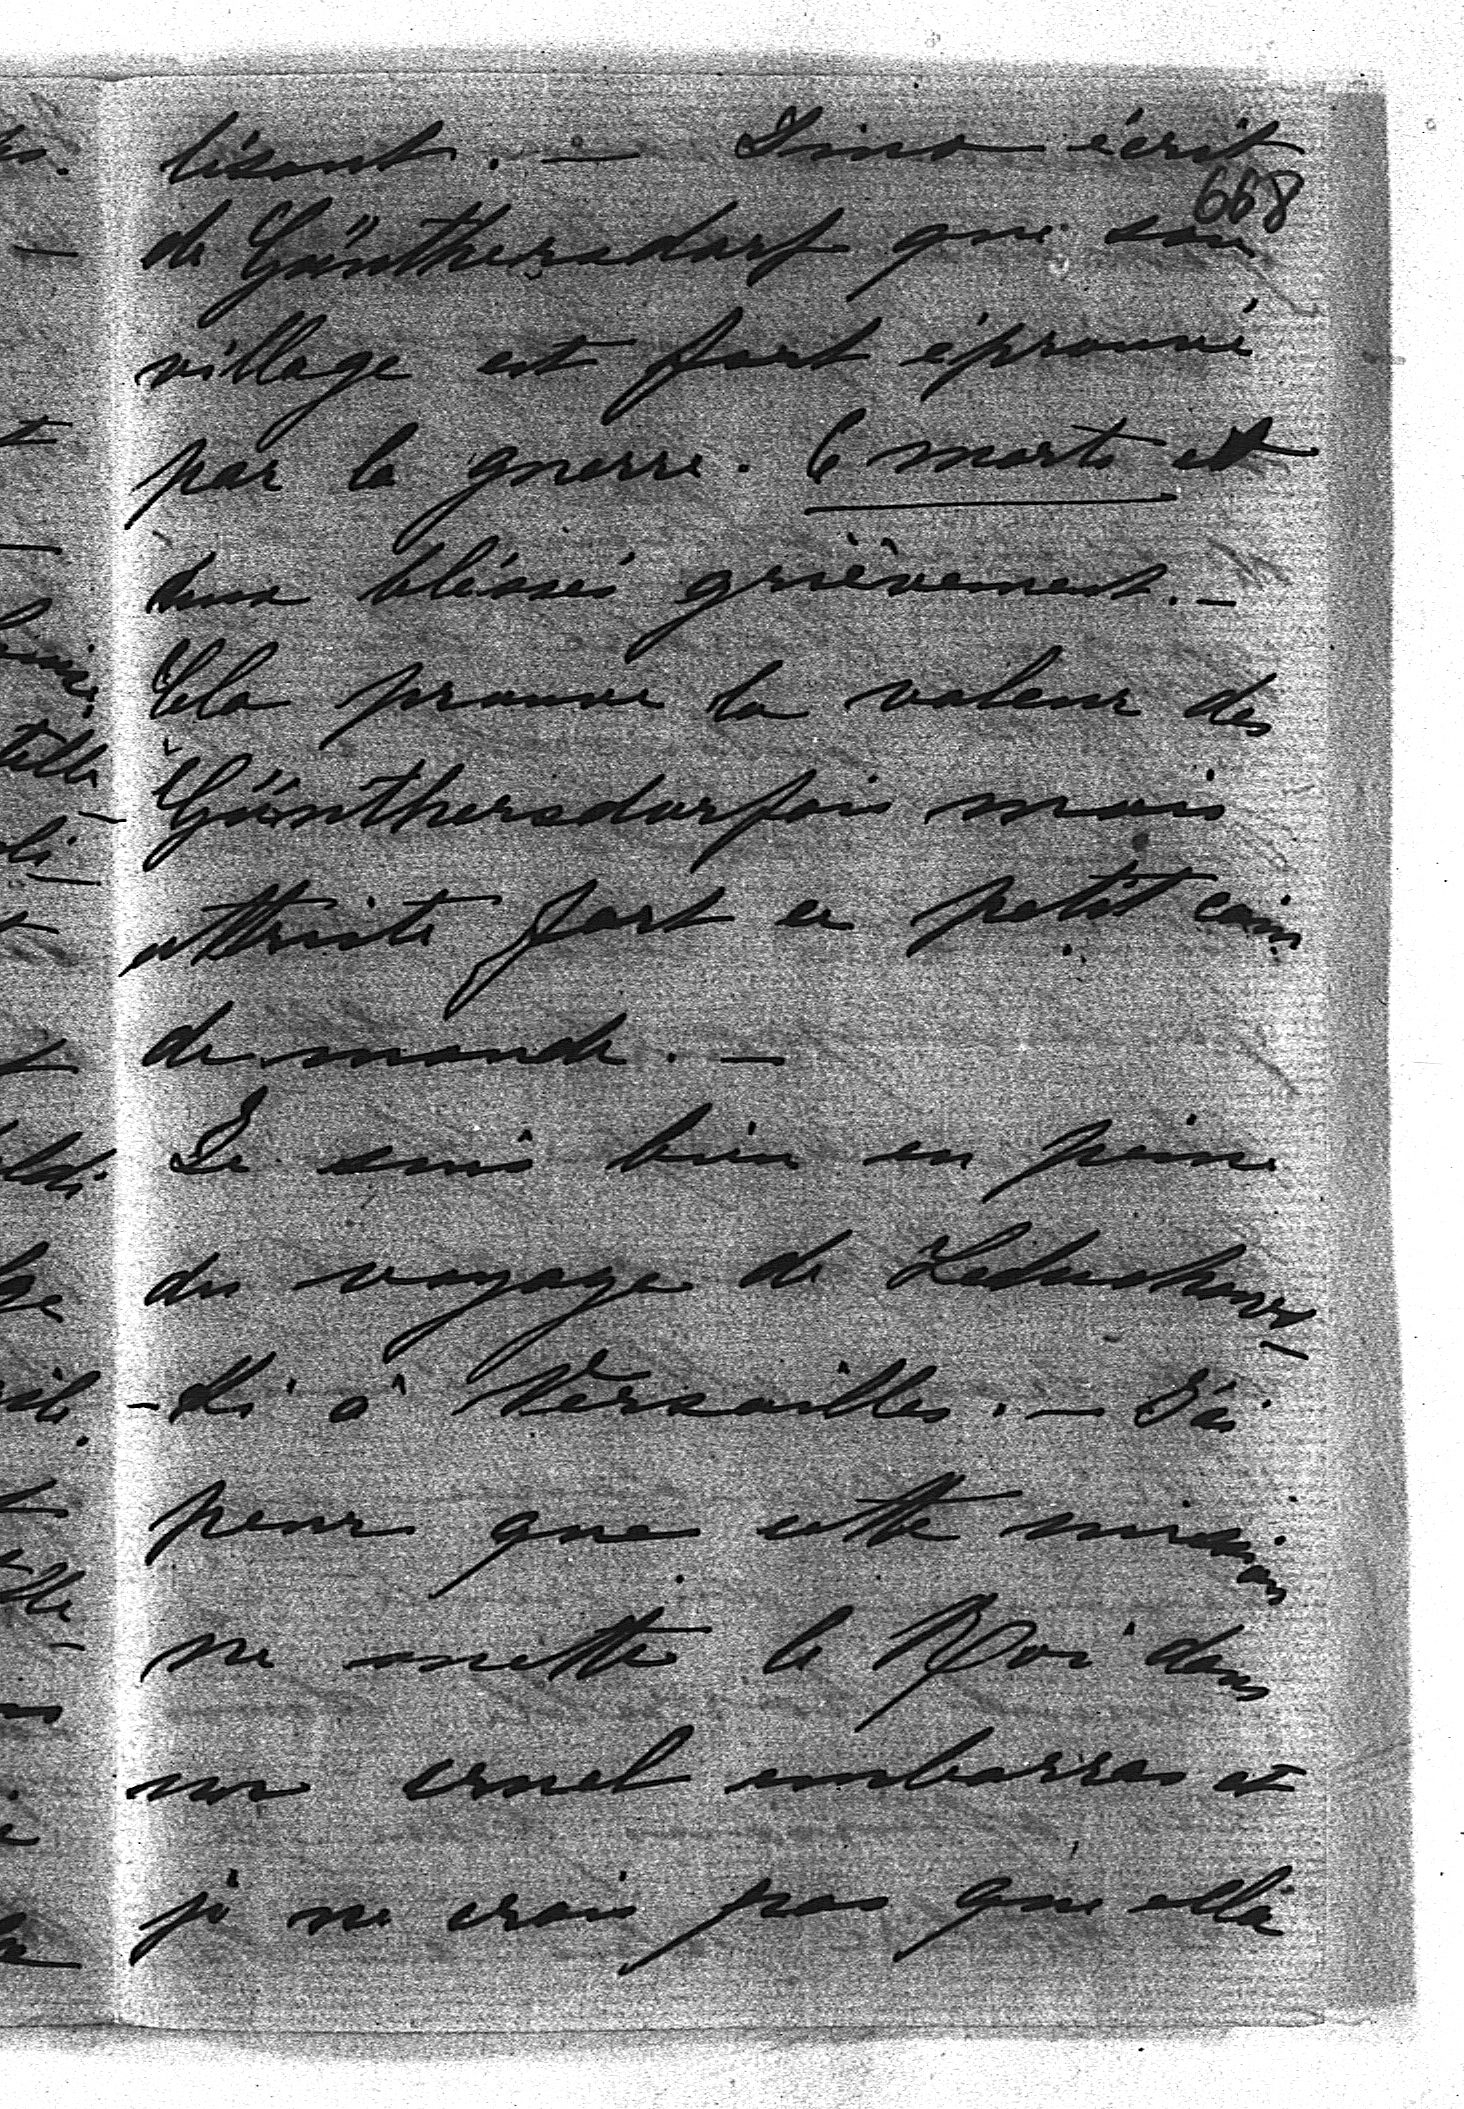 lisant. — Dino écrit
668
de Günthersdorf que son
village est fort éprouvé
par la guerre. 6 morts et
deux bléssés grièvement. —
Cela prouve la valeur des
Günthersdorfois mais
attriste fort ce petit coin
de monde. —
Je suis bien en peine
du voyage de Leduchows-
-ki à Versailles. — J'ai
peur que cette mission
ne mette le Roi dans
un cruel embarras et
je ne crois pas que elle